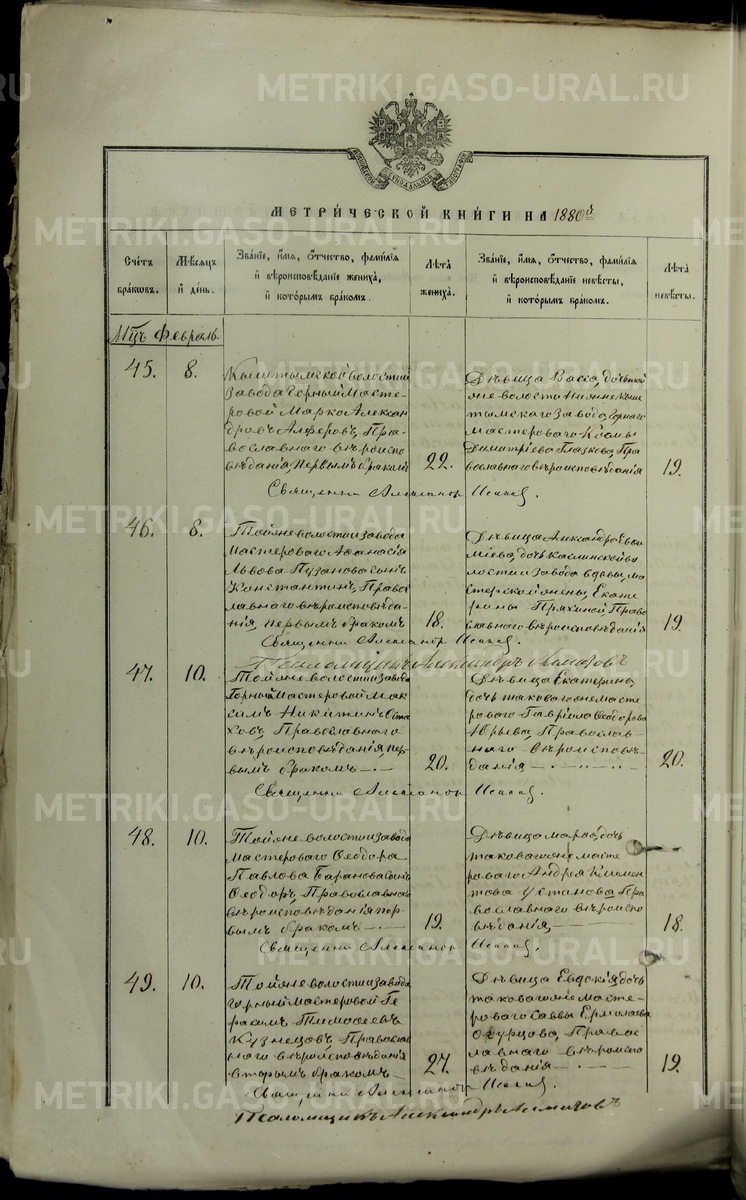 METRIKI.GASO-URAL.RU
МЕТРИ́ЧЕСКОЙ КНИ́ГИ НА 1880й
Счётъ бра́кѡвъ.
Мѣ́сяцъ и҆ де́нь.
Зва́нїе, и҆́мя, ѻ҆́тчество, фами́лїя и҆ вѣроисповѣ́данїе жениха̀, и҆ кото́рымъ бра́комъ.
Лѣ́та жениха̀.
Зва́нїе, и҆́мя, ѻ҆́тчество, фами́лїя и҆ вѣроисповѣ́данїе невѣ́сты, и҆ кото́рымъ бра́комъ.
Лѣ́та невѣ́сты.
Мц҃ъ Февраль
45. 8.
Кыштымской волости и
завода Горный Масте-
ровой Марко Алексан
дровъ Алферовъ, Пра-
вославнаго вѣроиспо
вѣданія, первымъ бракомъ
22.
Дѣвица Васса, дочь той
яне волости Нижне Кыш
тымскаго завода, горнаго
мастероваго Космы
Димитріева Глазкова, Пра
вославнаго вѣроисповѣданія
19.
Священникъ
46. 8.
Тойяне волости и завода
Мастероваго Аѳанасія
Львова Пузанова сынъ
Константинъ, Правос
лавнаго вѣроисповѣда-
нія, первымъ бракомъ
18.
Дѣвица Александра
дочь Каслинской во
лости и завода вдовы, ма
стерской жены, Екате
рины Пряхиной Право
славнаго вѣроисповѣданія
19.
Священникъ
Псаломщикъ Александръ
47. 10.
Тойяне волости и завода
Горный Мастеровой Мак
симъ Никитинъ Ста
ховъ, Православнаго
вѣроисповѣданія, пер-
вымъ бракомъ
20.
Дѣвица Екатерина,
дочь таковагояне масте
роваго Гавріила Ѳеодорова
Юрьева, Православ-
наго вѣроисповѣ-
данія
20.
Священникъ
48. 10.
Тойяне волости и завода
Мастероваго Ѳеодора
Павлова Баранова сынъ
Ѳеодоръ, Православнаго
вѣроисповѣданія пер-
вымъ бракомъ
19.
Дѣвица Марѳа, дочь
таковагояне масте
роваго Андрея Климен
това Устинова, Пра
вославнаго вѣроиспо
вѣданія,
18.
Священникъ
49. 10.
Тойяне волости и завода
горный Мастеровой Ге
расимъ Тимоѳеевъ
Кузнецовъ, Правосла
внаго вѣроисповѣданія
вторымъ бракомъ
27.
Дѣвица Евдокія, дочь
таковагояне масте-
роваго Саввы Ермилаева
Огурцова, Правос
лавнаго вѣроиспо
вѣданія
19.
Священникъ
Псаломщикъ Александръ